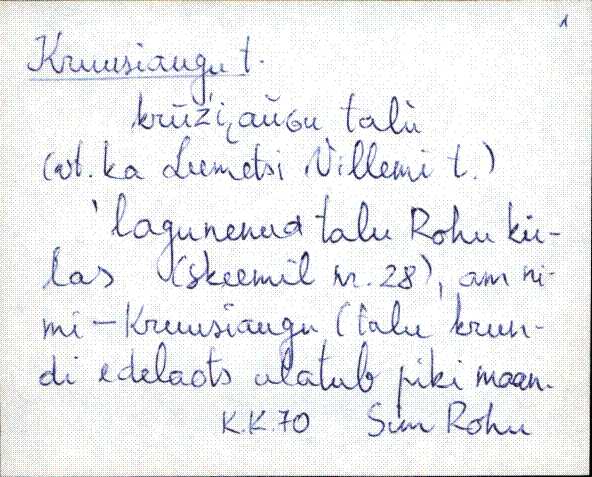 1
Kruusiaugu t.
krūźi̮au̯Gu talù
(vt. ka Leemetsi Villemi t.)
'lagunenud talu Rohu kü-
las (skeemil nr. 28), am ni-
mi – Kruusiaugu (talu krun-
di edelaots ulatub piki maan.
K.K. 70 Sim Rohu